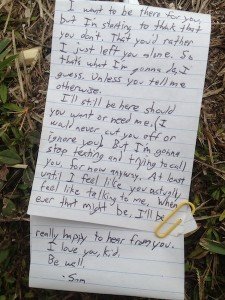 I want to be there for you,
but I'm starting to think that
you don't. That you'd rather
I just left you alone. So
that's what I'm gonna do, I
guess. Unless you tell me
otherwise.
I'll still be here should
you want or need me. (I
will never cut you off or
ignore you). But I'm gonna
stop texting and trying to call
you, for now anyway. At least
until I feel like you actually
feel like talking to me. When
ever that might be. I'll be
really happy to hear from you.
I love you, kid.
Be well
- Sam